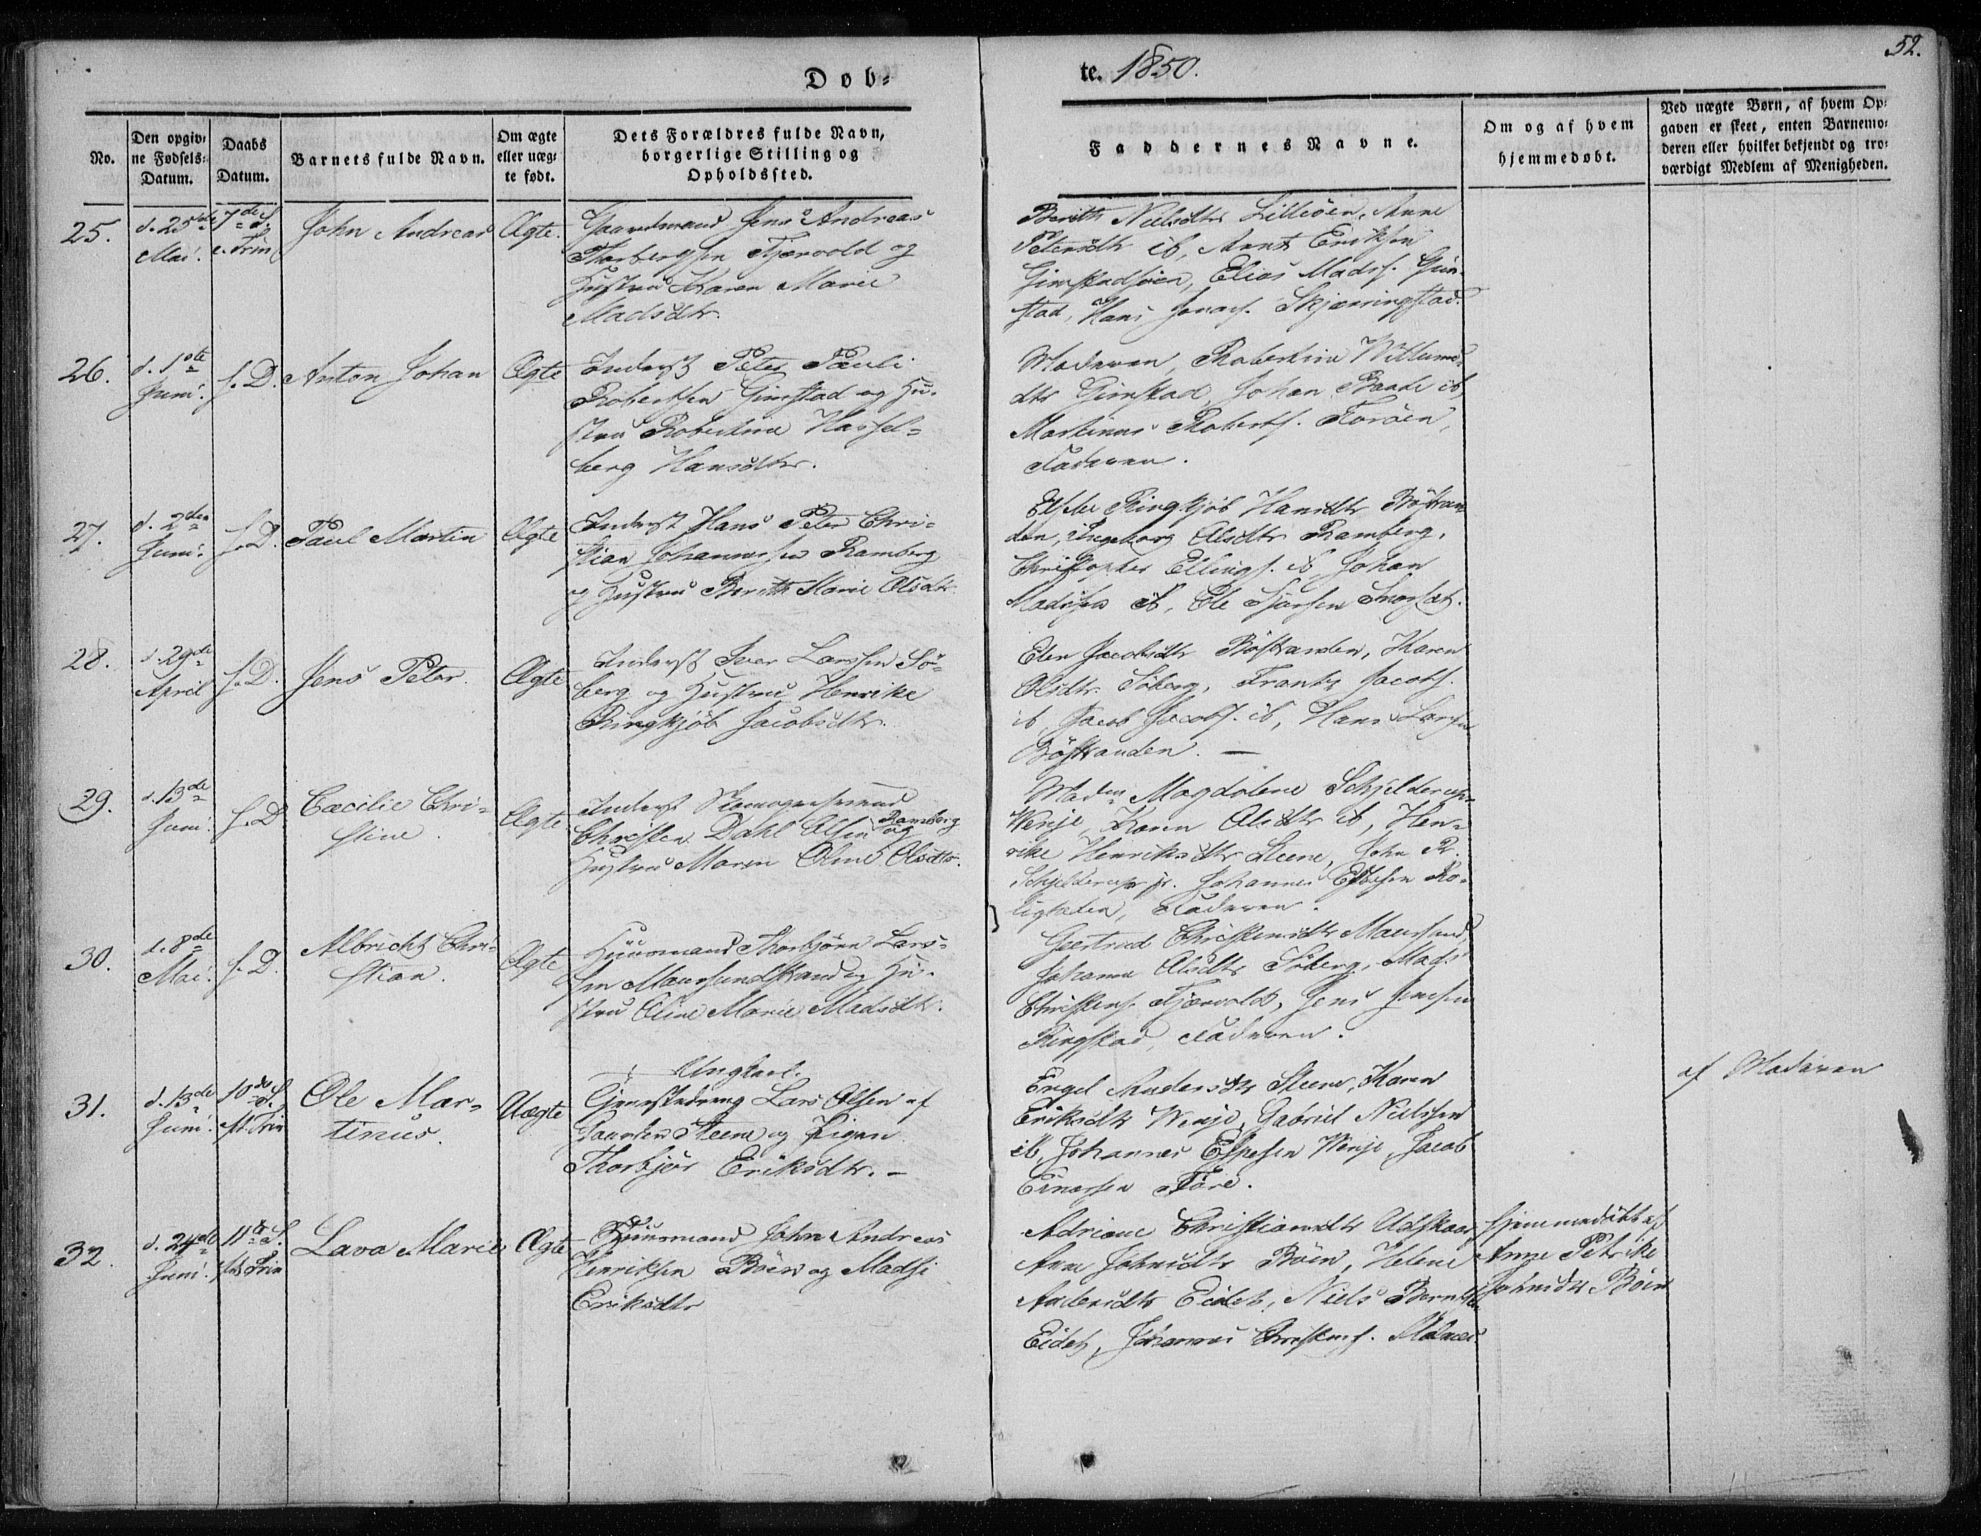 Døb=
te. 1850.
52.
No.
Den opgiv=
ne Fødsels=
Datum.
Daabs
Datum.
Barnets fulde Navn.
Om ægte
eller uæg=
te født.
Dets Forældres fulde Navn,
borgerlige Stilling og
Opholdssted.
Faddernes Navne.
Om og af hvem
hjemmedøbt.
Ved uægte Børn, af hvem Op=
gaven er skeet, enten Barnemo=
deren eller hvilket bekjendt og tro=
værdigt Medlem af Menigheden.
25.
d. 25de
Mai.
7de S.
e. Trin
John Andreas
Ægte.
Gaardmand Jens Andreas
Thorbergsen Fjærvold og
Hustru Karen Marie
Madsdtr.
Berith Nielsdtr Lilleöen, Anne
Petersdtr ib, Arnt Eriksen
Gimstadsöen, Elias Madss. Gim-
stad, Hans Jonass. Skjærringstad.
26.
d. 1ste
Juni.
s. D.
Anton Johan
Ægte
Inderst Peter Pauli
Robertsen Gimstad og Hu-
stru Robertine Hassel-
berg Hansdtr.
Moderen, Robertine Willums-
dtr Gimstad, Johan Baade ib,
Martinus Roberts. Floröen,
Faderen.
27.
d. 2den
Juni.
s. D.
Paul Martin
Ægte
Inderst Hans Peter Chri-
stian Johannessen Ramberg
og Hustru Berith Marie Olsdtr.
Ringkjöb Hansdtr Böstran-
den, Ingeborg Olsdtr Ramberg,
Christopher Ellings. ib, Johan
Madsen ib, Ole
28.
d. 29de
April
s. D.
Jens Peter.
Ægte
Inderst Iver Larssen Sö-
berg og Hustru Henrike
Ringkjöb Jacobsdtr.
Elen Jacobsdtr Böstranden, Karen
Olsdtr. Söberg, Frants Jacobs.
ib, Jacob Jacobs. ib, Hans Larsen
Böstranden. —
29.
d. 13de
Juni.
s. D
Cæcilie Chri-
stine.
Ægte
Inderst
Christen Dahl Olsen Ramberg og
Hustru Maren Oline Olsdtr.
Madm Magdalene Schjelderup
Winje, Karen Olsdtr ib, Hen-
rike Henriksdtr Steene, John R.
Schjelderup jr. Johannes Espesen Ro-
ligheden, Faderen.
30.
d. 8de
Mai.
s. D.
Albricht Chri-
stian.
Ægte
Huusmand Thorbjörn Lars-
sen Maursundstrand og Hu-
stru Oline Marie Madsdtr.
Gjertrud Christensdtr Maursund,
Johanna Olsdtr Söberg, Mads
Christens. Fjærvold, Jens Jensen
Ringstad, Faderen.
31.
d. 13de
Juni.
10de S.
e. Trin
Ole Mar-
tinus.
Uægte
Ungkarl.
Tjenestedreng Lars Olsen af
Gaarden Steene og Pigen
Thorbjör Eriksdtr. —
Engel Andersdtr Steene, Karen
Eriksdtr Winje, Gabriel Nielssen
ib, Johannes Espesen Winje, Jacob
EinersenFöre.
af Moderen
32.
d. 24de
Juni.
11te S.
e. Trin
Lava Marie
Ægte
Huusmand John Andreas
Henriksen Böen og Madsi
Eriksdtr
Adriane Christiansdtr Udskaar,
Ane Johnsdtr Böen, Helene
Andersdtr Eidet, Niels
Eidet, Johannes Christens.
hjemmedöbt af
Anne Petrike
Johnsdtr Böen